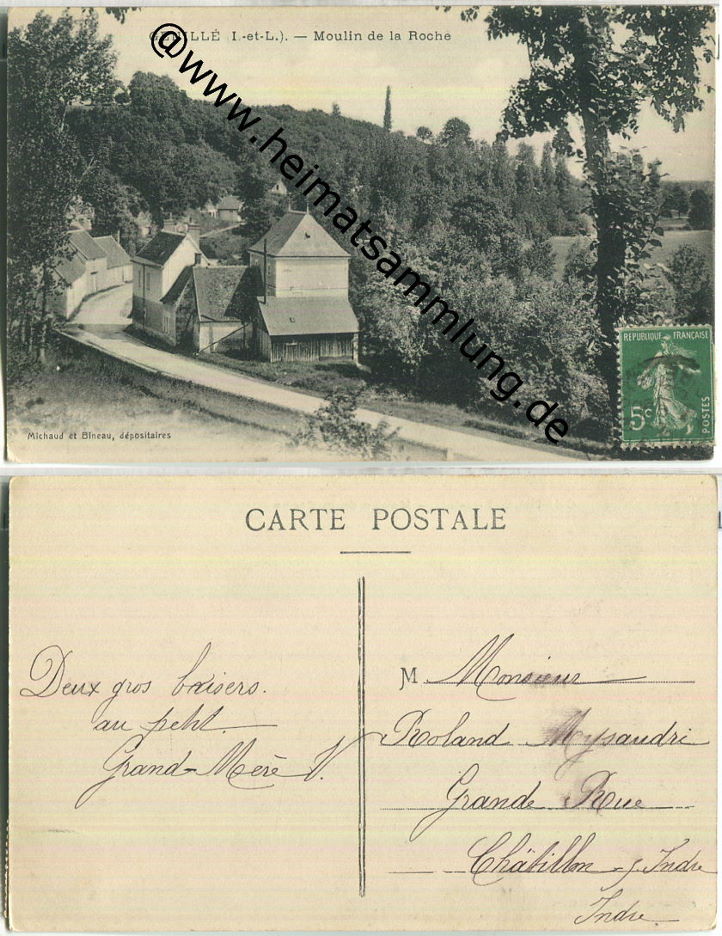 GENILLÉ (I.-et-L.). — Moulin de la Roche
@www.heimatsammlung.de
REPUBLIQUE FRANÇAISE
5c
POSTES
Michaud et Bineau, dépositaires
CARTE POSTALE
Deux gros baisers.
au petit.
Grand-Mère V.
M. Monsieur
Roland
Grande Rue
Châtillon s/ Indre
Indre